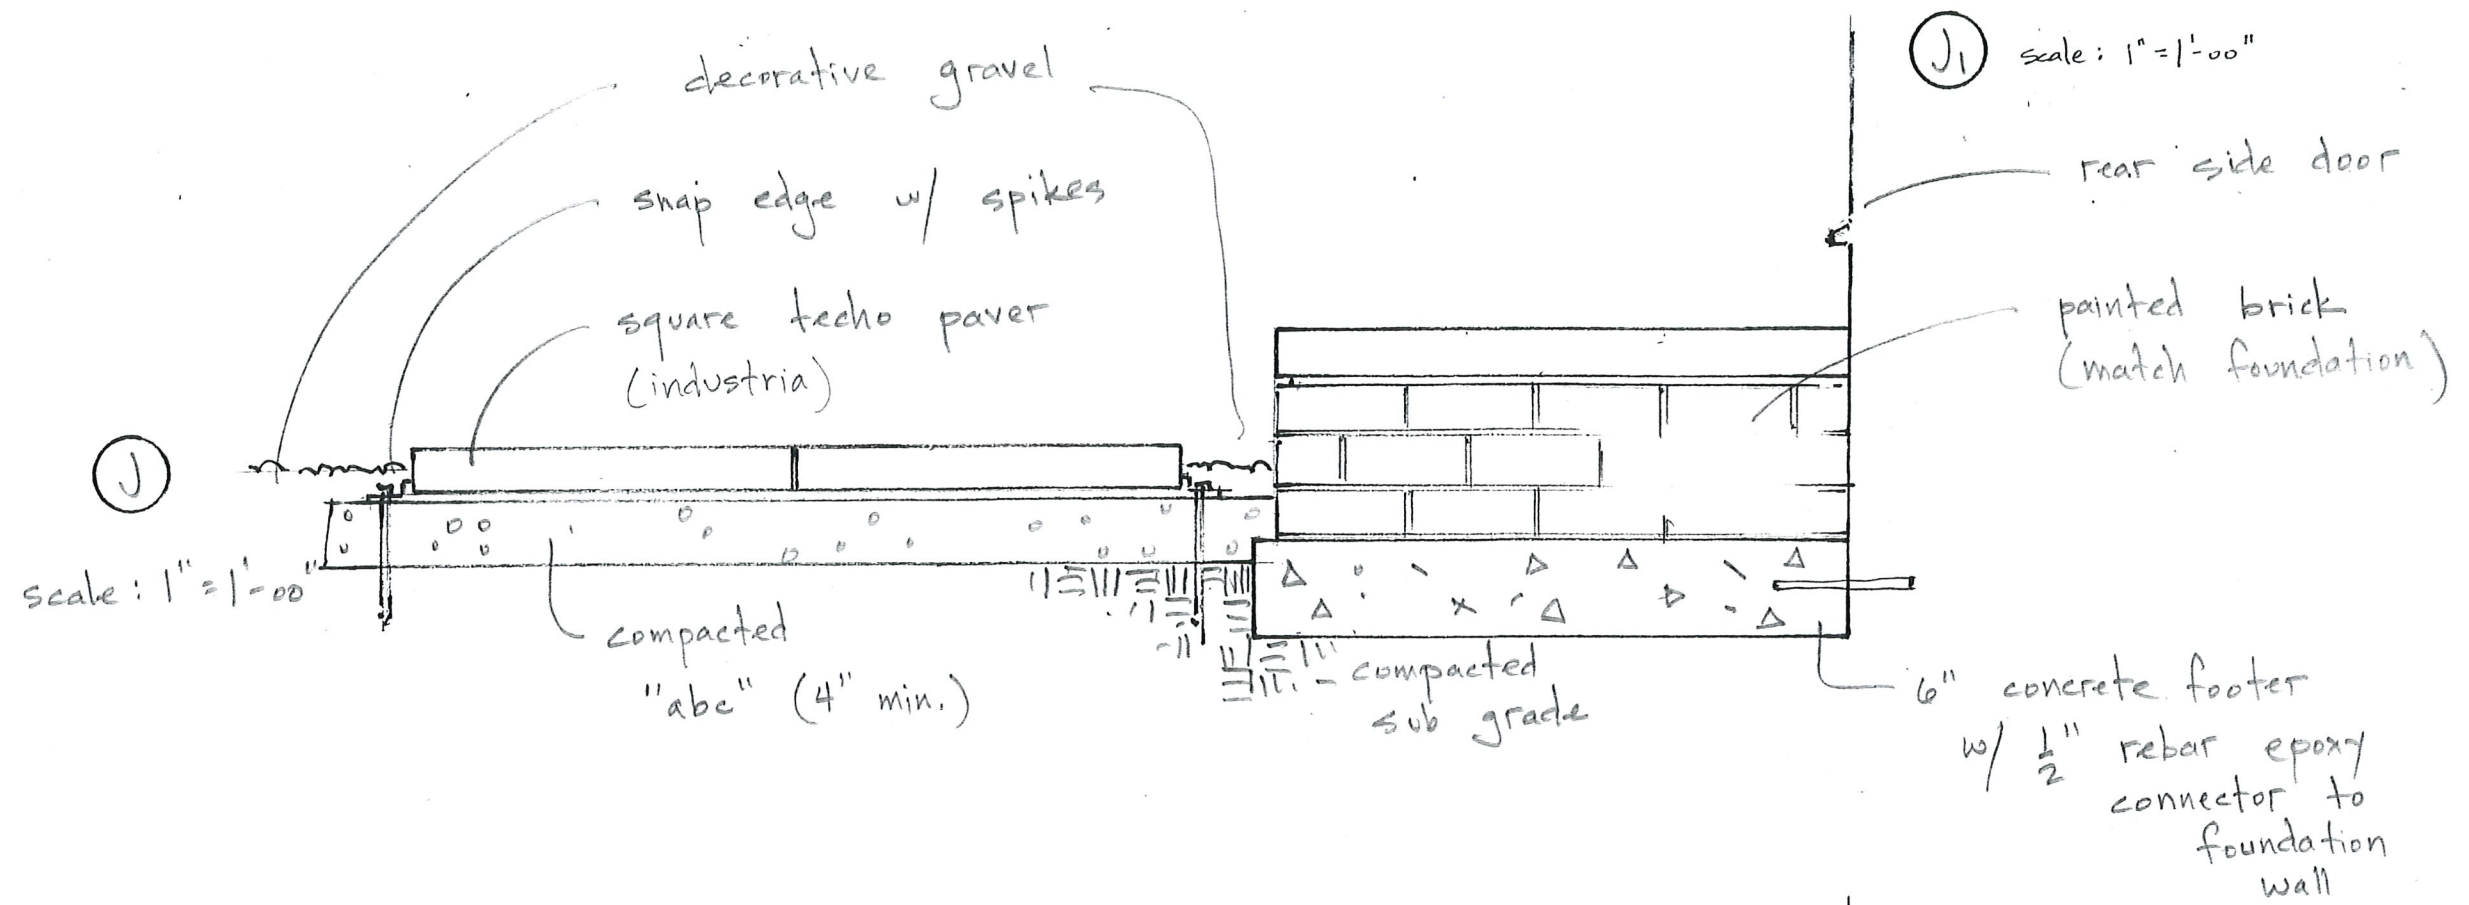 decorative gravel
snap edge w/ spikes
square techo paver
(industria)
J
scale: 1"=1'-00"
compacted
"abc" (4" min.)
compacted
sub grade
J1 scale: 1"=1'-00"
rear side door
painted brick
(match foundation)
6" concrete footer
w/ 1/2" rebar epoxy
connector to
foundation
wall